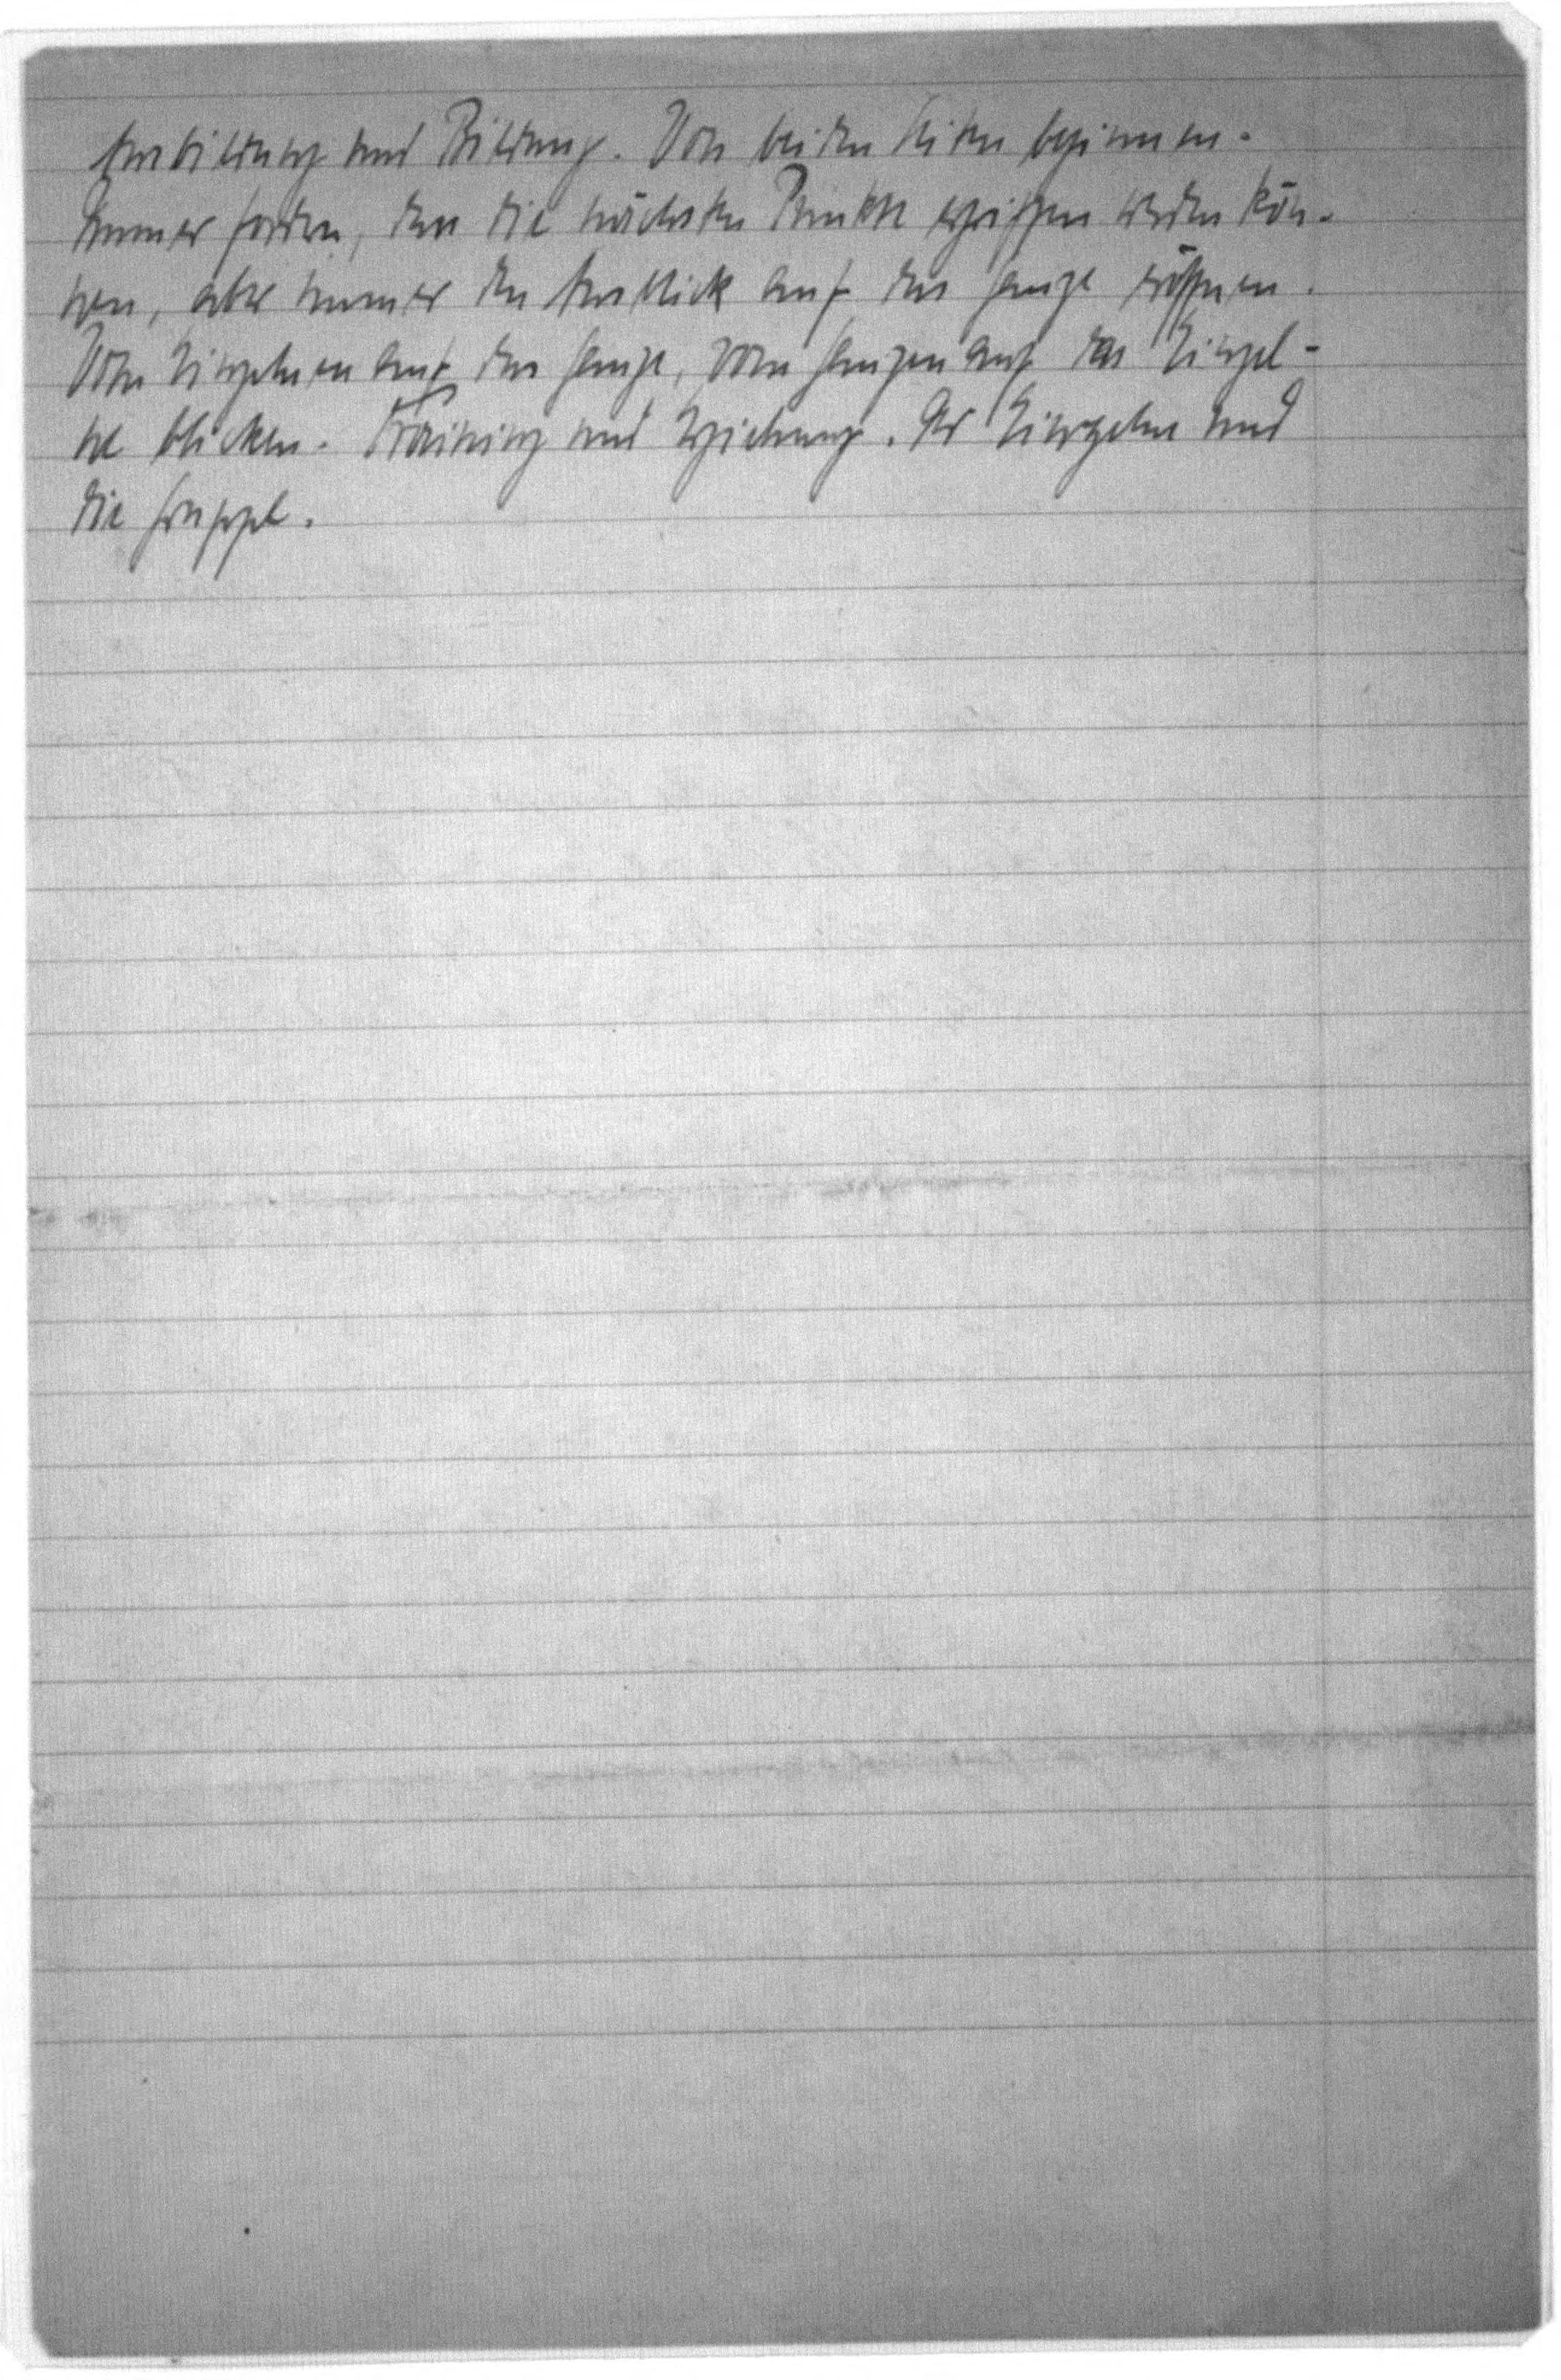 Ausbildung und Bildung. Von beiden Seiten beginnen.
Immer fordern, den die nächsten Punkte ergriffen werden kön-
nen, aber immer den Ausblick auf das ganze eröffnen.
Vom Einzelnen auf das ganze, vom ganzen auf das Einzel-
ne blicken. Training und Erziehung. Der Einzelne und
die Gruppe.